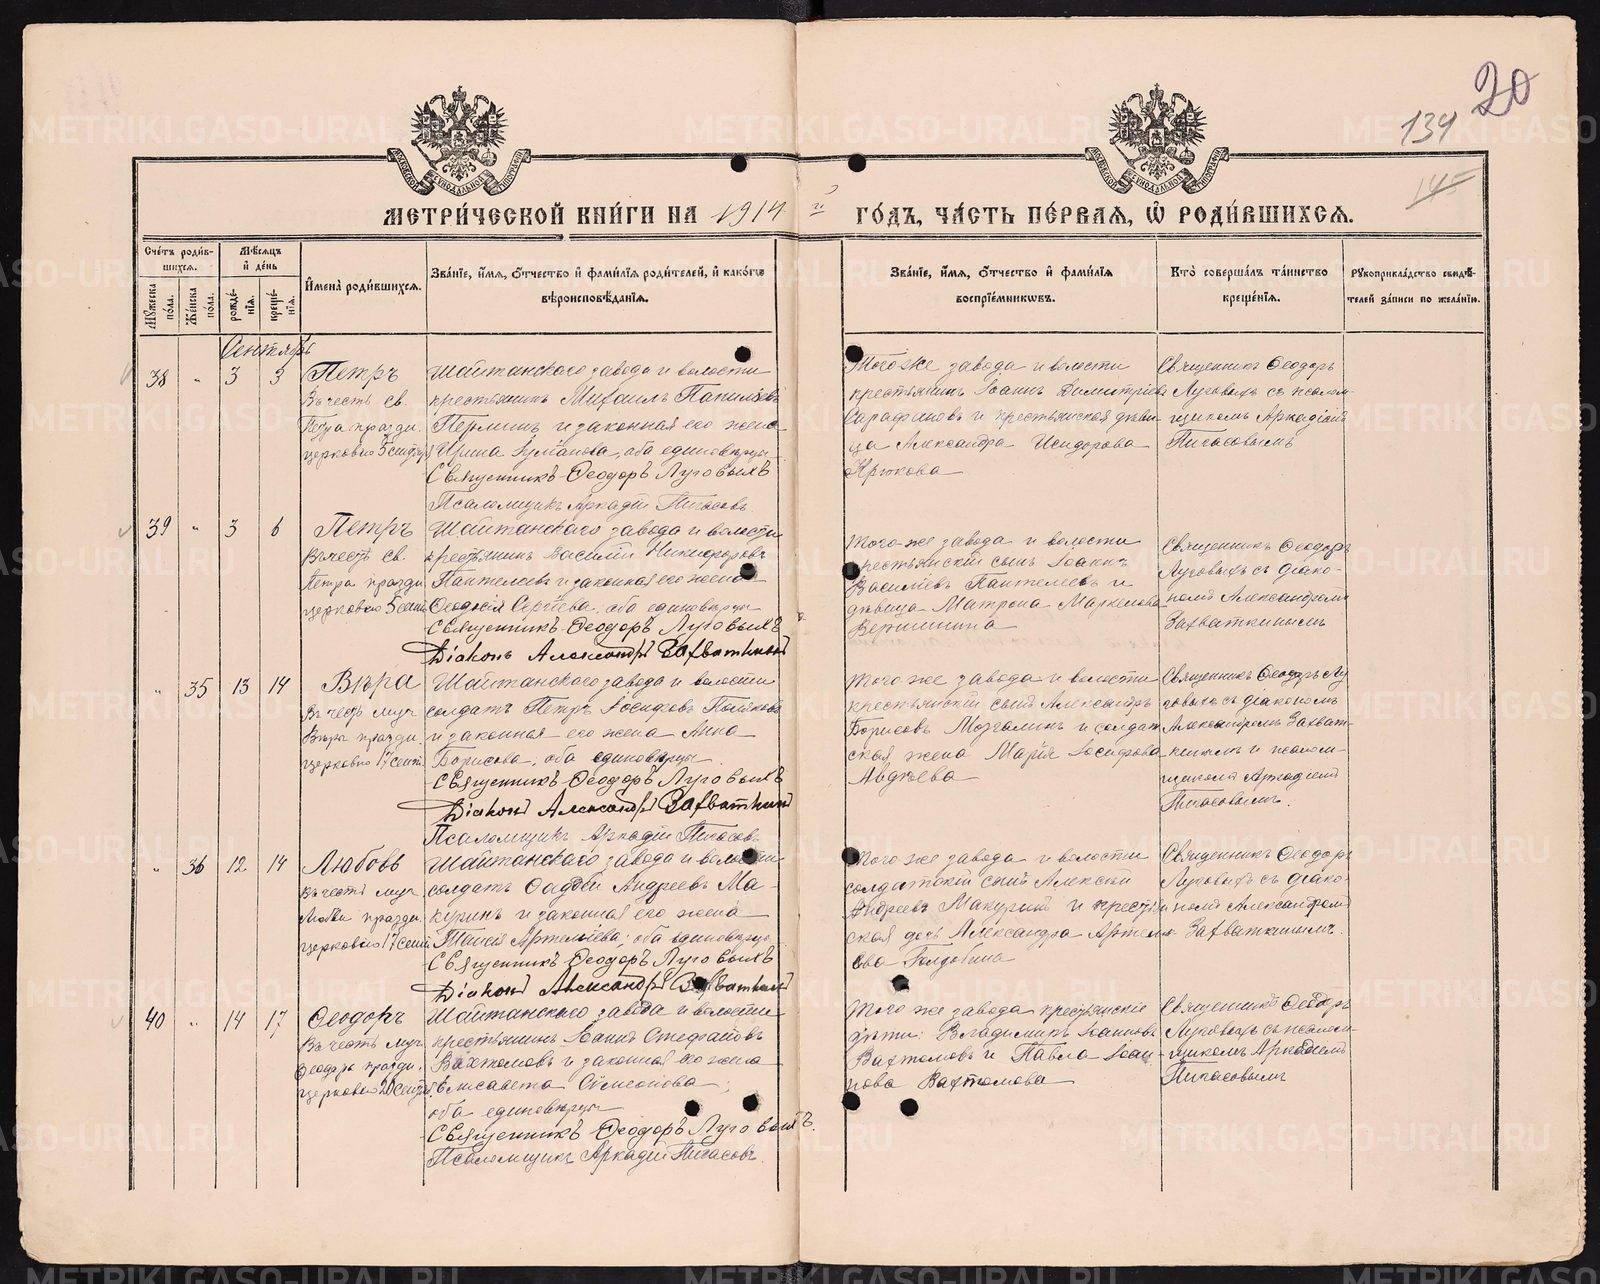 20
134
145
МЕТРИ́ЧЕСКОЙ КНИ́ГИ НА 1914 й ГО́ДЪ, ЧА́СТЬ ПЕ́РВАЯ, Ѽ РОДИ́ВШИХСЯ.
Сче́тъ роди́в-
шихся.
Мꙋ́жеска по́ла.
Же́нска по́ла.
Мѣ́сяцъ и де́нь
рожде́-нїя.
креще́-нїя.
Имена̀ роди́вшихся.
Зва́нїе, и́мя, о́тчество и фами́лїя роди́телей, и како́гѡ
вѣроисповѣ́данїя.
Зва́нїе, и́мя, о́тчество и фами́лїя
воспрїе́мникѡвъ.
Кто̀ соверша́лъ та́инство
креще́нїя.
Рꙋкоприкла́дство свидѣ́-
телей за́писи по жела́нїю.
Сентябрь
38 " 3 3 Петръ
Въ честь св.
Петра праздн.
церковію 5 сентяб
Шайтанскаго завода и волости
крестьянинъ Михаилъ
и законная его жена
Ирина оба единовѣрцы
Священникъ Ѳеодоръ Луговыхъ
Псаломщикъ Аркадій Пигасовъ
Того же завода и волости
крестьянинъ Іоаннъ Димитріевъ
Сарафановъ и крестьянская дѣви-
ца Александра Исидорова
Крюкова
Священникъ Ѳеодоръ
Луговыхъ съ псалом-
щикомъ Аркадіемъ
Пигасовымъ
39 " 3 6 Петръ
Въ честь св.
Петра праздн.
церковію 5 сент.
Шайтанскаго завода и волости
крестьянинъ Василій Никифоровъ
Пантелеевъ и законная его жена
Ѳеодосія Сергіева, оба единовѣрцы
Священникъ Ѳеодоръ Луговыхъ
Діаконъ Александръ Захваткинъ
Того же завода и волости
крестьянскій сынъ Іоаннъ
Василіевъ Пантелеевъ и
дѣвица Матрона Маркелова
Вершинина
Священникъ Ѳеодоръ
Луговыхъ съ діако-
номъ Александромъ
Захваткинымъ
" 35 13 14 Вѣра
Въ честь муч.
Вѣры праздн.
церковію 17 сент.
Шайтанскаго завода и волости
солдатъ Петръ Іосифовъ Поляковъ
и законная его жена Анна
Борисова, оба единовѣрцы
Священникъ Ѳеодоръ Луговыхъ
Діаконъ Александръ Захваткинъ
Псаломщикъ Аркадій Пигасовъ
Того же завода и волости
крестьянскій сынъ Александръ
Борисовъ и солдат-
ская жена Марія Іосифова
Авдѣева
Священникъ Ѳеодоръ Лу-
говыхъ съ діакономъ
Александромъ Захват-
кинымъ и псалом-
щикомъ Аркадіемъ
Пигасовымъ.
" 36 12 14 Любовь
Въ честь муч.
Любви праздн.
церковію 17 сент.
Шайтанскаго завода и волости
солдатъ Андреевъ Ма-
куринъ и законная его жена
Таисія Артемьева, оба единовѣрцы
Священникъ Ѳеодоръ Луговыхъ
Діаконъ Александръ Захваткинъ
Того же завода и волости
солдатскій сынъ Алексѣй
Андреевъ Макуринъ и крестьян-
ская дочь Александра Артемь-
ева
Священникъ Ѳеодоръ
Луговыхъ съ діако-
номъ Александромъ
Захваткинымъ.
40 " 14 17 Ѳеодоръ
Въ честь муч.
Ѳеодора праздн.
церковію 20 сентяб.
Шайтанскаго завода и волости
крестьянинъ Іоаннъ Стефановъ
Вахтомовъ и законная его жена
Елисавета Симеонова;
оба единовѣрцы
Священникъ Ѳеодоръ Луговыхъ.
Псаломщикъ Аркадій Пигасовъ.
Того же завода крестьянскіе
дѣти: Владимиръ Іоанновъ
Вахтомовъ и Павла Іоан-
нова Вахтомова
Священникъ Ѳеодоръ
Луговыхъ съ псалом-
щикомъ Аркадіемъ
Пигасовымъ
METRIKI.GASO-URAL.RU